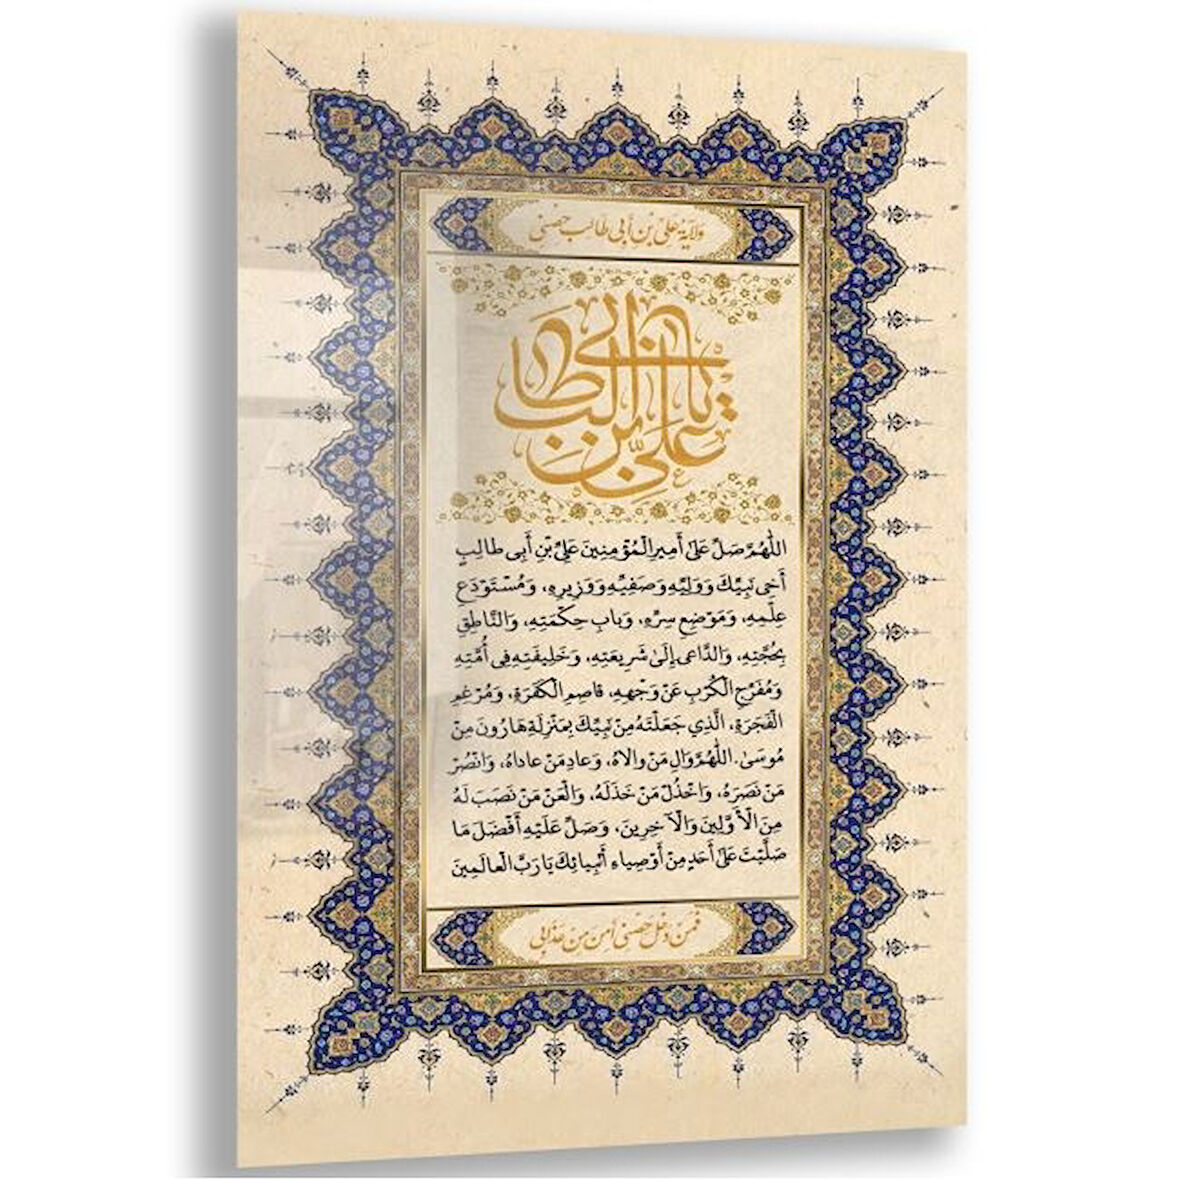 ولاية علي بن أبي طالب حصني
يا علي بن ابي طالب
اللّٰهُمَّ صَلِّ عَلىٰ أَميرِ الْمُؤْمِنِينَ عَلِيِّ بْنِ أَبِي طالِبٍ
أَخِي نَبِيِّكَ وَوَلِيِّهِ وَصَفِيِّهِ وَوَزِيرِهِ، وَمُسْتَوْدَعِ
عِلْمِهِ، وَمَوْضِعِ سِرِّهِ، وَبابِ حِكْمَتِهِ، وَالنَّاطِقِ
بِحُجَّتِهِ، وَالدَّاعِي إِلىٰ شَرِيعَتِهِ، وَخَلِيفَتِهِ فِي أُمَّتِهِ
وَمُفَرِّجِ الْكُرَبِ عَنْ وَجْهِهِ، قاصِمِ الْكَفَرَةِ، وَمُرْغِمِ
الْفَجَرَةِ، الَّذِي جَعَلْتَهُ مِنْ نَبِيِّكَ بِمَنْزِلَةِ هَارُونَ مِنْ
مُوسَىٰ. اللّٰهُمَّ وَالِ مَنْ والاهُ، وَعادِ مَنْ عاداهُ، وَانْصُرْ
مَنْ نَصَرَهُ، وَاخْذُلْ مَنْ خَذَلَهُ، وَالْعَنْ مَنْ نَصَبَ لَهُ
مِنَ الْأَوَّلِينَ وَالْآخِرِينَ، وَصَلِّ عَلَيْهِ أَفْضَلَ مَا
صَلَّيْتَ عَلىٰ أَحَدٍ مِنْ أَوْصِياءِ أَنْبِيائِكَ يَا رَبَّ الْعالَمِينَ
فمن دخل حصني أمن من عذابي